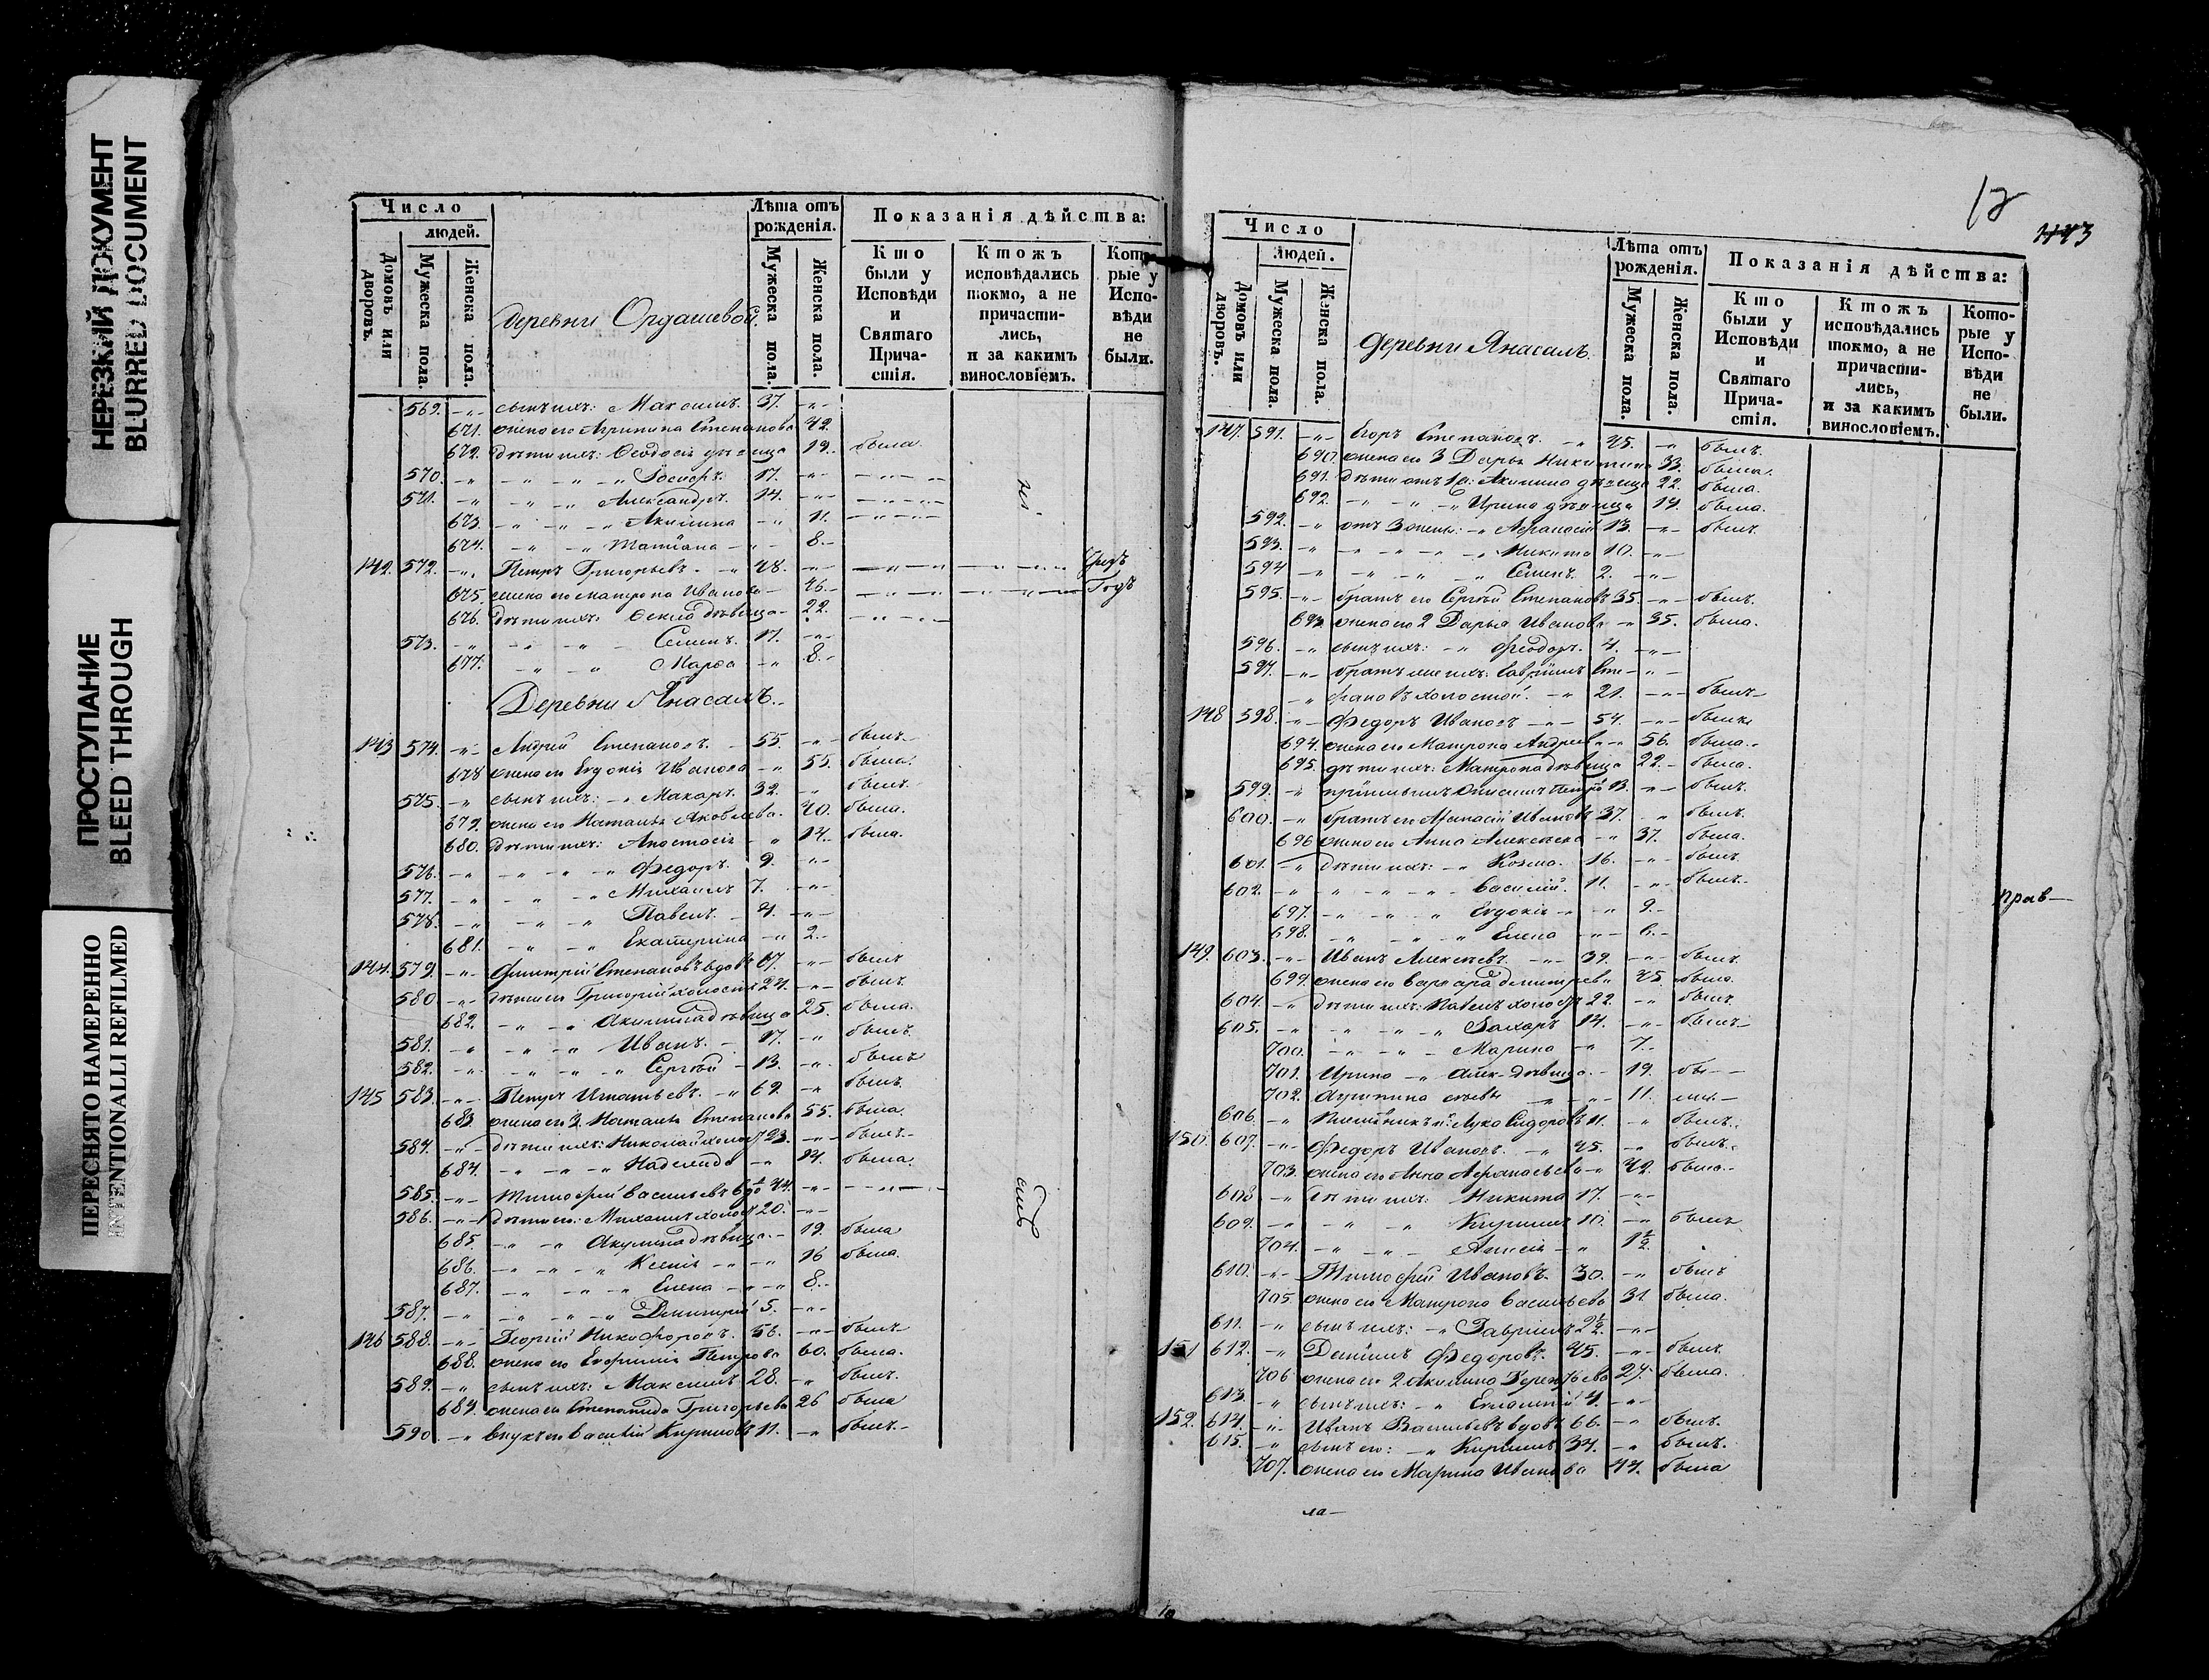 НЕРЕЗКИЙ ДОКУМЕНТ
BLURRED DOCUMENT
ПРОСТУПАНИЕ
BLEED THROUGH
ПЕРЕСНЯТО НАМЕРЕННО
INTENTIONALLI REFILMED
Число
людей.
Домовъ или дворовъ.
Мужеска пола.
Женска пола.
деревни Ордашевой.
Лѣта отъ рожденія.
Мужеска пола.
Женска пола.
Показанія дѣйства:
Кто были у Исповѣди и Святаго Причастія.
Ктожъ исповѣдались токмо, а не причастились, и за какимъ винословіемъ.
Которые у Исповѣди не были.
569. -"- сынъ ихъ: Максимъ. 37. -"-
671. жена его Агрипина Степанова 42.
672. дѣти ихъ: Феодосія дѣвица 19. была.
570. -"- -"- -"- 17. -"-
571. -"- -"- Александръ. 14. -"-
673. -"- -"- Акилина -"- 11.
674. -"- -"- Татіана -"- 8.-
142. 572. -"- Петръ Григорьевъ. -"- 48. -"-
675. жена его Матрона Иванова - 46.-
Годъ
676. дѣти ихъ: Фекла дѣвица - 22.
573. -"- -"- Семенъ. 17. -"-
677. -"- -"- Марфа -"- 8.-
Деревни Янасалъ.
143 574. -"- Андрей Степановъ. - 55. -"- былъ
678 жена его Евдокія Иванова -"- 55. была.
575. -"- сынъ ихъ: -"- Макаръ. 32. -"- былъ
679. жена его Наталья Яковлева. 40. была.
680. дѣти ихъ: Анастасія -"- 14. была.
576. -"- -"- -"- Федоръ. 9. -"-
577. -"- -"- -"- Михаилъ 7. -"-
578. -"- -"- -"- Павелъ. - 4. -"-
681. -"- -"- Екатерина -"- 2.-
144. 579. -"- Дмитрій Степановъ вдовъ 67. -"- былъ
580 -"- Григорій холостъ 24. -"- былъ.
682. -"- -"- Акилина дѣвица 25. была.
581. -"- -"- -"- Иванъ. - 17. -"- былъ.
582. -"- -"- -"- Сергѣй - 13. -"- былъ
145 583. -"- Петръ Игнатьевъ. -"- 62. -"- былъ.
683. жена его 3. Наталья Степанова 55. была
584. -"- дѣти ихъ: Николай холос. 23. -"- былъ.-
684. -"- -"- -"- Надежда -"- 14. была.
585. -"- Тимофей Васильевъ вдо 44. -"-
586. -"- дѣти его: Михаилъ холос. 20. -"-
685. -"- -"- Акулина дѣвица.- 19. была
686. -"- -"- -"- Ксенія -"- 16 была.
687. -"- -"- -"- Елена -"- 8.-
587. -"- -"- -"- Дмитрій 5. -"-
146 588. -"- Георгій Никифоровъ. 56. -"- былъ
688. жена его Евфимія Петрова 60. была.
589. -"- сынъ ихъ: Максимъ 28. -"- былъ.
689. жена его Степанида Григорьева 26 была
590 -"- внукъ его Василій Кириловъ 11. -"- былъ.-
Число
людей.
Домовъ или дворовъ.
Мужеска пола.
Женска пола.
деревни Янасалъ.
Лѣта отъ рожденія.
Мужеска пола.
Женска пола.
Показанія дѣйства:
Кто были у Исповѣди и Святаго Причастія.
Ктожъ исповѣдались токмо, а не причастились, и за какимъ винословіемъ.
Которые у Исповѣди не были.
147. 591. -"- Егоръ Степановъ. -"- 45. -"- былъ.
690. жена его 3 Дарья Никитина 33. была.
691. дѣти отъ 1й: Акилина дѣвица 22. была.
692. -"- -"- Ирина дѣвица 14. была.
592. -"- отъ 3 жены: -"- Афанасій 13. -"- былъ
593. -"- -"- -"- Никита 10. -"-
594 -"- -"- -"- Семенъ. 2. -"-
595. -"- братъ его Сергѣй Степановъ 35. -"- былъ.
693. жена его 2 Дарья Иванова -"- 35. была.
596. -"- сынъ ихъ: -"- Феодоръ. 4. -"-
597. -"- братъ ихъ: Гавріилъ Сте-
-"- пановъ холостой. -"- 21. -"- былъ
148 598. -"- Федоръ Ивановъ -"- 54. -"- былъ
694. жена его Матрона Андреев. -"- 56. была.
695. дѣти ихъ: Матрона дѣвица 22.- была.
599. -"- 13. -"- былъ.
600. -"- братъ его Афанасій Ивановъ 37. -"- былъ.
696 жена его Анна Алексѣева -"- 37. была.
601. -"- дѣти ихъ: -"- Козма. 16. -"- былъ
602. -"- -"- -"- Василій. 11. -"- былъ.
697. -"- -"- Евдокія -"- 9.-
698. -"- -"- Елена -"- 6.-
прав-
149. 603. -"- Иванъ Алексѣевъ. -"- 39. -"- былъ.
699. жена его Варвара Дмитрев. 45. была.
604. -"- дѣти ихъ: Павелъ холостъ 22. -"- былъ.
605. -"- -"- -"- Захаръ 14. -"- былъ
700. -"- -"- Марина -"- 7.-
701. Ирина -"- Алек. дѣвица.- 19.
702. Агрипина -"- 11.
606. -"- Лука Сидоровъ 11. -"- былъ.
150. 607. -"- Федоръ Ивановъ. -"- 45. -"- былъ.
703. жена его Анна Афанасьева -"- 42. была.-
608 -"- дѣти ихъ: Никита 17. -"-
609. -"- -"- -"- Кирилъ 10. -"- былъ
704. -"- -"- Анисія -"- 1½.
610. -"- Тимофей Ивановъ. 30. -"- былъ
705. жена его Матрона Васильева 31 была.
611. -"- сынъ ихъ: -"- Гавріилъ 2½. -"-
151 612. -"- Даніилъ Федоровъ. 45. -"- былъ.
706 жена его 2 Акилина Терентьева 27. была.
613. -"- сынъ ихъ: -"- 4. -"-
152. 614. -"- Иванъ Васильевъ вдовъ 66. -"- былъ.
615. -"- сынъ его: -"- Кирилъ 34. -"- былъ.
707. жена его Марина Иванова 44. была
ла-